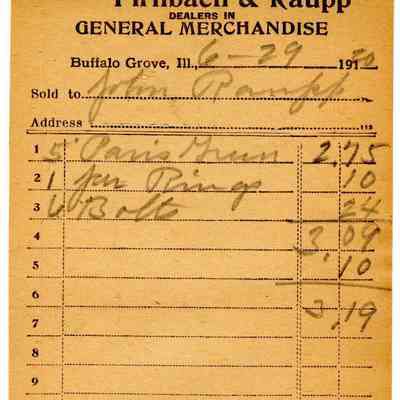 Firnbach & Raupp
DEALERS IN
GENERAL MERCHANDISE
Buffalo Grove, Ill., 6-29 1920
Sold to John Raupp
Address
1 5 Paris Green 2.75
2 1 jar Rings 10
3 6 Bolts 24
4 3,09
5 .10
6 3,19
7
8
9